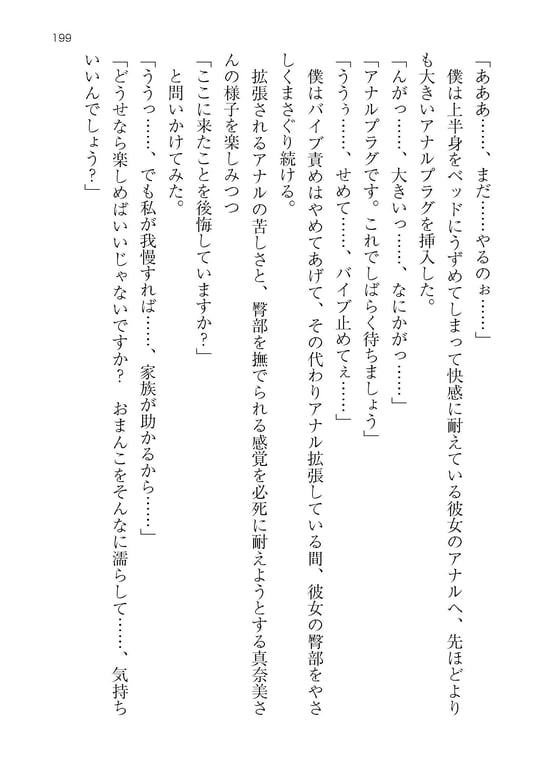 199
「あああ……、まだ……やるのぉ……」
　僕は上半身をベッドにうずめてしまって快感に耐えている彼女のアナルへ、先ほどより
も大きいアナルプラグを挿入した。
「んがっ……、大きいっ……、なにかがっ……」
「アナルプラグです。これでしばらく待ちましょう」
「ううぅ……、せめて……、バイブ止めてぇ……」
　僕はバイブ責めはやめてあげて、その代わりアナル拡張している間、彼女の臀部をやさ
しくまさぐり続ける。
　拡張されるアナルの苦しさと、臀部を撫でられる感覚を必死に耐えようとする真奈美さ
んの様子を楽しみつつ
「ここに来たことを後悔していますか？」
と問いかけてみた。
「ううっ……、でも私が我慢すれば……、家族が助かるから……」
「どうせなら楽しめばいいじゃないですか？　おまんこをそんなに濡らして……、気持ち
いいんでしょう？」